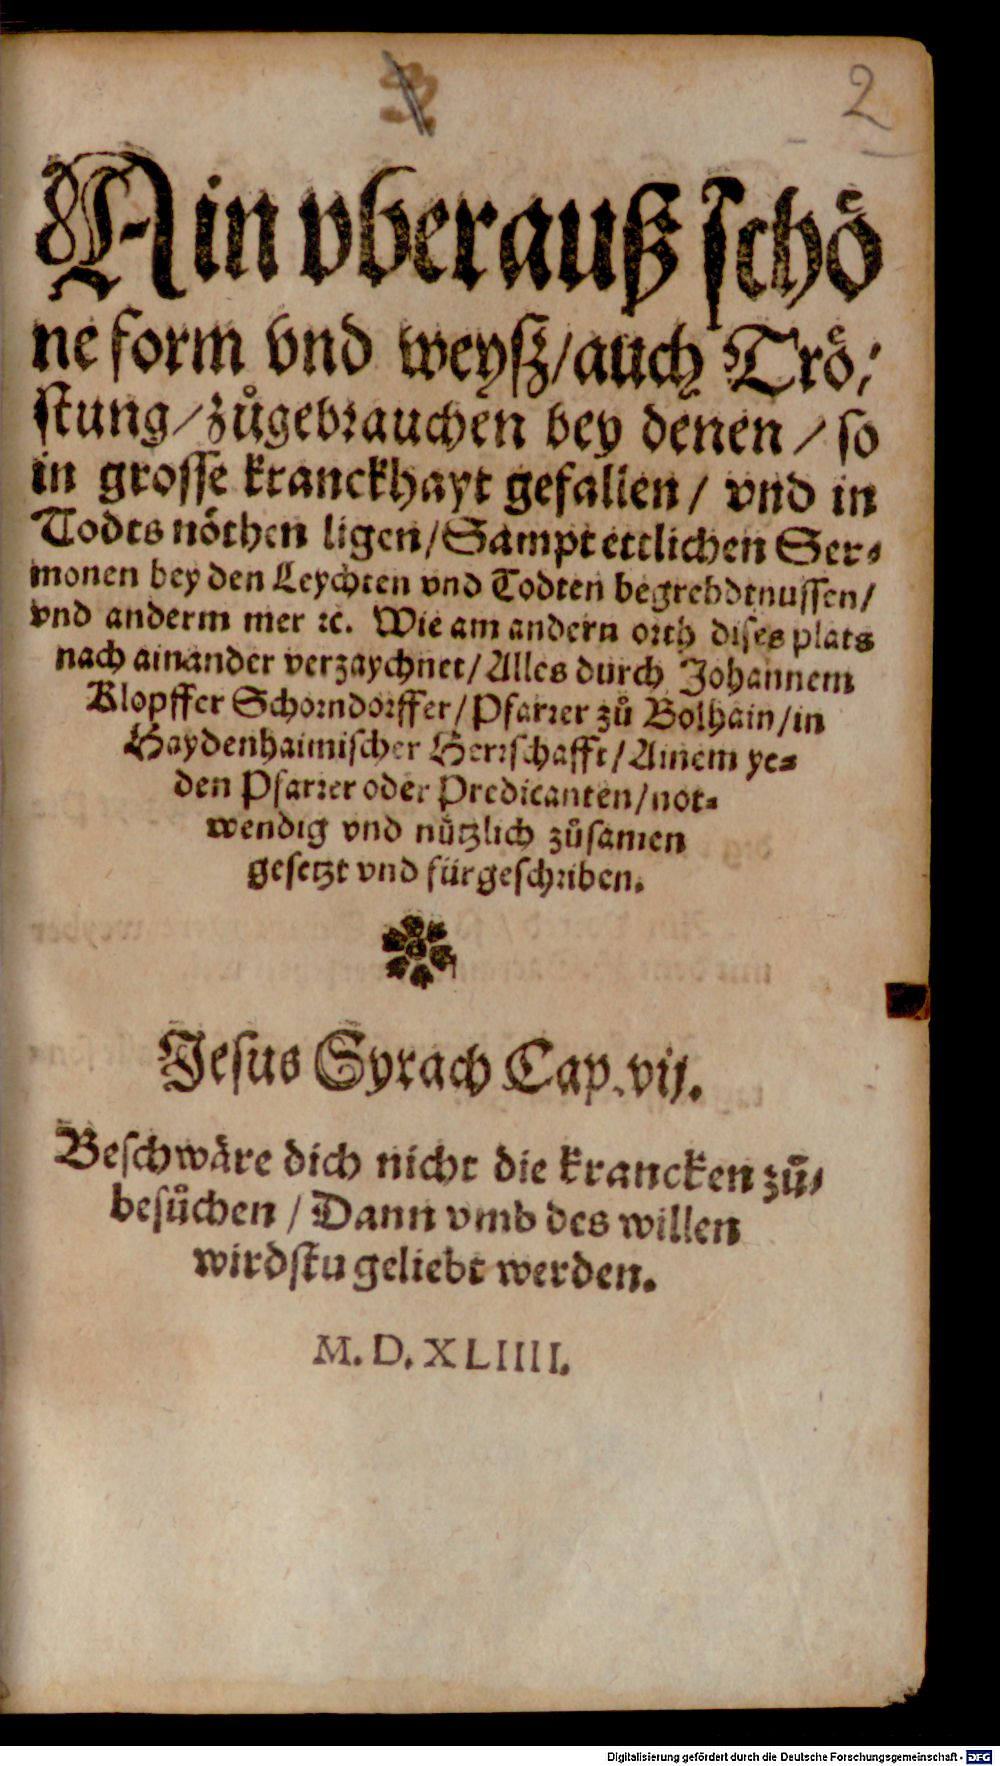 2
Ain vberauß schö
ne form vnd weyß/ auch Trö-
stung/ zůgebrauchen bey denen/ so
in grosse kranckhayt gefallen/ vnd in
Todts nöthen ligen/ Sampt ettlichen Ser-
monen bey den Leychten vnd Todten begrebdtnussen/
vnd anderm mer ꝛc. Wie am andern orth dises plats
nach ainander verzaychnet/ Alles durch Johannem
Klopffer Schorndorffer/ Pfarrer zů Bolhain/ in
Haydenhaimischer Herrschafft/ Ainem ye-
den Pfarrer oder Predicanten/ not-
wendig vnd nützlich zůsamen
gesetzt vnd fürgeschriben.
Jesus Syrach Cap. vij.
Beschwäre dich nicht die krancken zů-
besůchen/ Dann vmb des willen
wirdstu geliebt werden.
M. D. XLIIII.
Digitalisierung gefördert durch die Deutsche Forschungsgemeinschaft - DFG